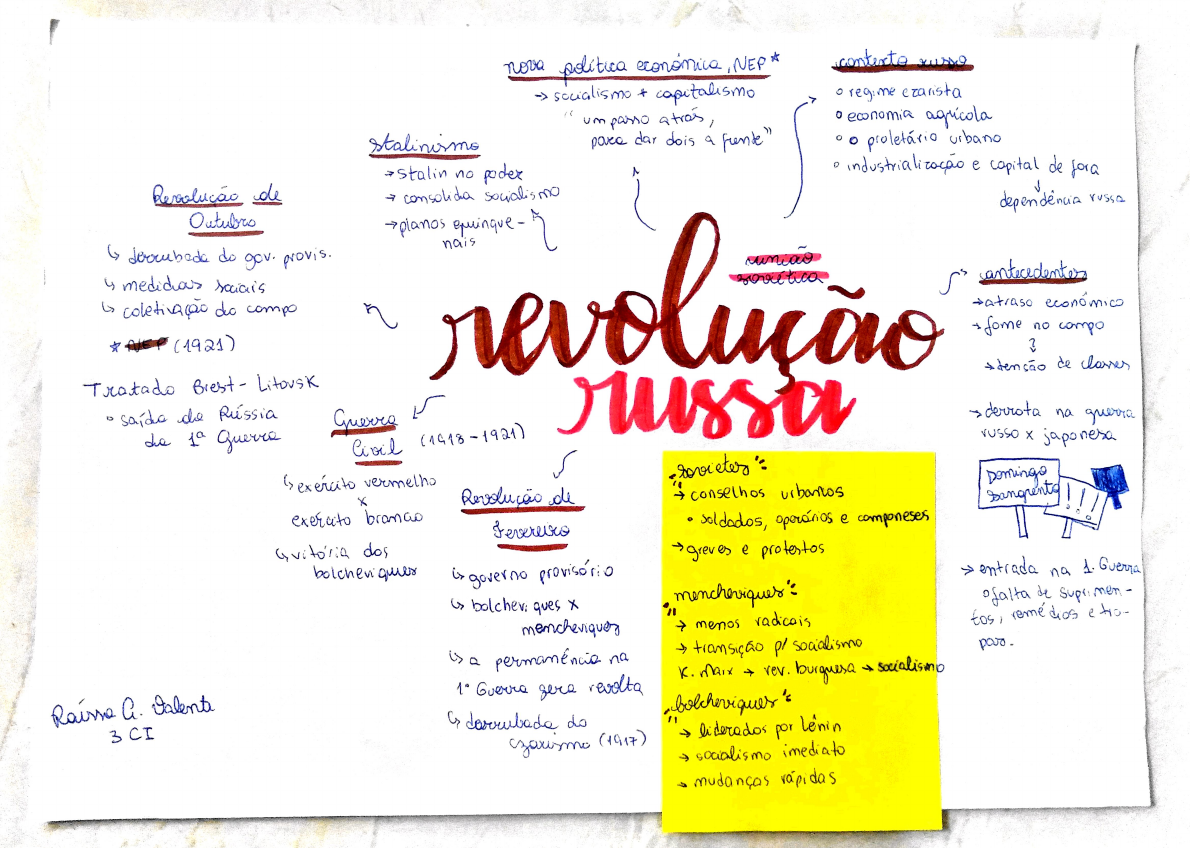 revolução
russa
união
soviética
contexto russo
° regime czarista
° economia agrícola
° o proletário urbano
° industrialização e capital de fora
↓
dependência russa
antecedentes
→ atraso econômico
→ fome no campo
→ tensão de classes
→ derrota na guerra
russo x japonesa
Domingo
Sangrento
→ entrada na 1. Guerra
° falta de suprimen-
tos, remédios e tro-
pas.
"sovietes"
→ conselhos urbanos
• soldados, operários e camponeses
→ greves e protestos
"mencheviques"
→ menos radicais
→ transição p/ socialismo
K. Marx → rev. burguesa → socialismo
"bolcheviques"
→ liderados por Lênin
→ socialismo imediato
→ mudanças rápidas
Revolução de
Fevereiro
↳ governo provisório
↳ bolcheviques x
mencheviques
↳ a permanência na
1ª Guerra gera revolta
↳ derrubada do
czarismo (1917)
Guerra
Civil (1918-1921)
↳ exército vermelho
x
exército branco
↳ vitória dos
bolcheviques
Revolução de
Outubro
↳ derrubada do gov. provis.
↳ medidas sociais
↳ coletivação do campo
* NEP (1921)
Tratado Brest-Litovsk
° saída da Rússia
da 1ª Guerra
stalinismo
→ stalin no poder
→ consolida socialismo
→ planos quinque-
nais
nova política econômica, NEP *
→ socialismo + capitalismo
"um passo atrás,
para dar dois a frente"
Raíssa G. Valente
3 CI